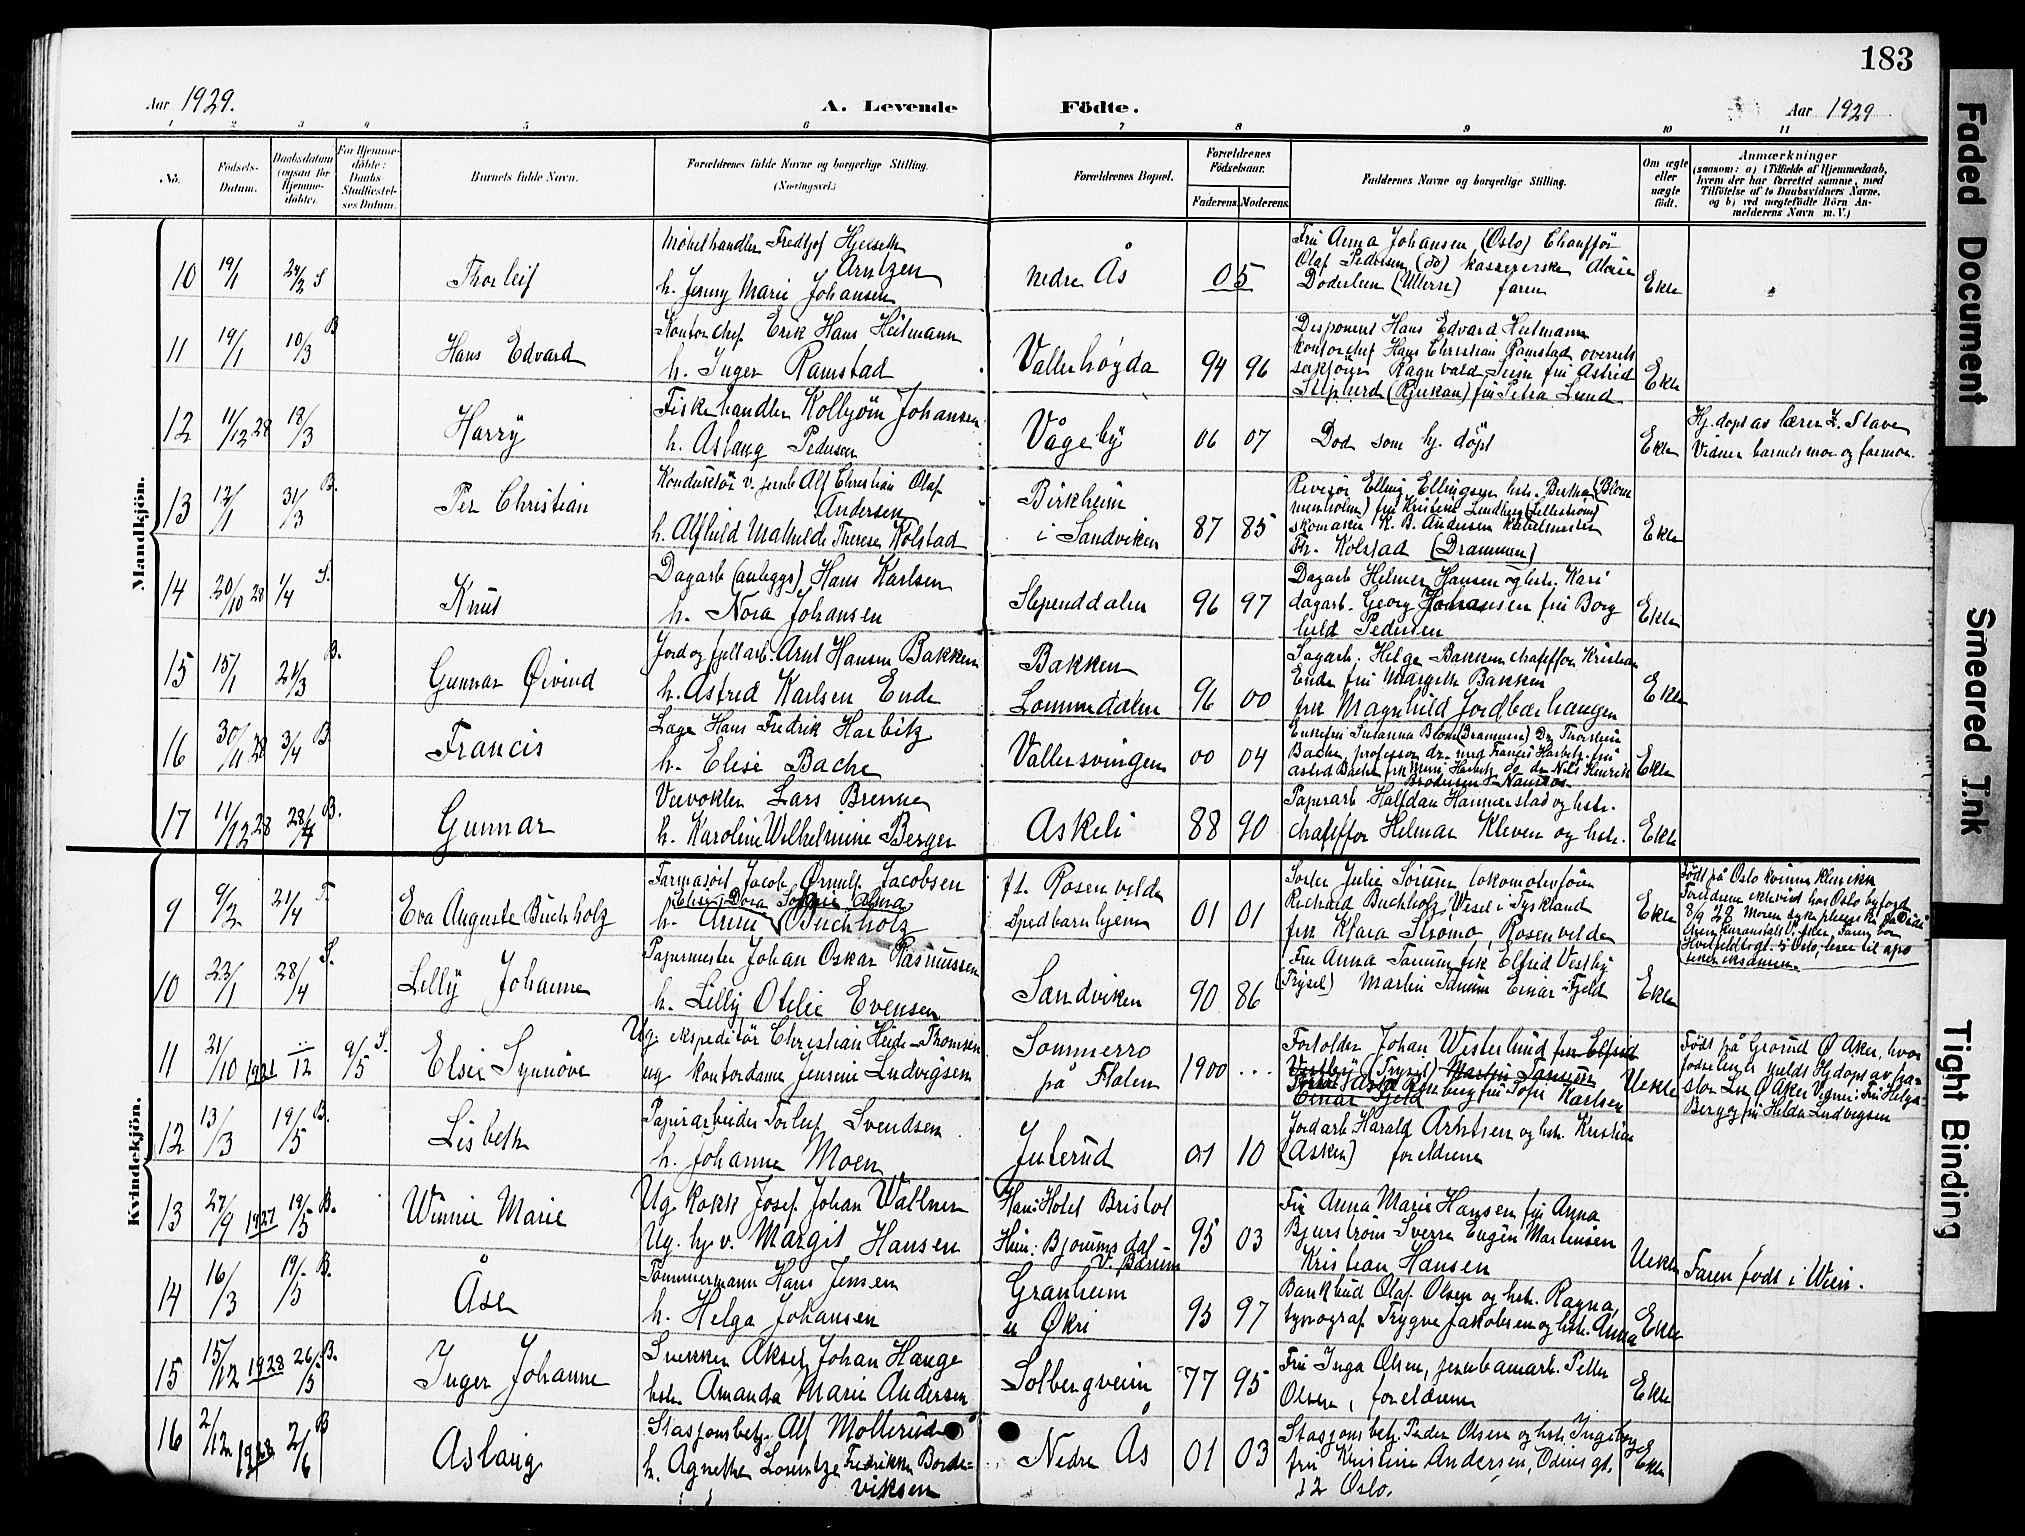 183
Aar 1929. A. Levende Födte. Aar 1929
1 2 3 4 5 6 7 8 9 10 11
No.
Fødsels-
Datum.
Daabsdatum
(ogsaa for
Hjemme-
døbte).
For Hjemme-
døbte:
Daabs
Stadfæstel-
ses Datum.
Barnets fulde Navn.
Forældrenes fulde Navne og borgerlige Stilling.
(Næringsvei.)
Forældrenes Bopæl.
Forældrenes
Fødselsaar.
Faderens. Moderens.
Faddernes Navne og borgerlige Stilling.
Om ægte
eller
uægte
født.
Anmærkninger
(saasom: a) i Tilfælde af Hjemmedaab,
hvem der har forrettet samme, med
Tilføielse af to Daabsvidners Navne,
og b) ved uægtefødte Börn An-
melderens Navn m. V.)
Mandkjön.
10 19/1 24/2 S Thorleif
Møbelhandler Fredtjof Hjeiseth
Arntzen
h. Jenny Marie Johansen
Nedre Ås 05
Fru Anna Johansen (Oslo) Chauffør
Olaf Pedersen (do) kassererske
Døderlein (Ullern) faren
Ekte
11 19/1 10/3 B Hans Edvard
Kontorchef Erik Hans Heitmann
h. Inger Ramstad
Vallerhøyda 94 96
Disponent Hans Edvard Heitmann
kontorchef Hans Christian Ramstad overrets
sakfører Ragnvald fru Astrid
(Rjukan) fru Petra Lund
Ekte
12 11/12 28 18/3 Harry
Fiskehandler Kolbjörn Johansen
h. Aslaug Pedersen
Vågeby 06 07
Död som hj. döpt
Ekte
Hj. døpt av lærer Z. Stave
Vidner barnets mor og farmor.
13 12/1 31/3 B. Per Christian
Konduktör v. jernb Alf Christian Olaf
Andersen
h. Alfhild Mathilde Therese Kolstad
Birkheim
i Sandviken 87 85
Revisor Elling Ellingsen hst. Bertha (Blom
menholm) fru Kristine Lindberg (Lillestrøm)
skomaker K. B. Andersen
Th. Kolstad (Drammen)
Ekte
14 20/10 28 1/4 S. Knut
Dagarb (anleggs) Hans Karlsen
h. Nora Johansen
Slependdalen 96 97
Dagarb Helmer Hansen og hst. Kari
dagarb. Georg Johansen fru Borg
hild Pedersen
Ekte
15 15/1 21/3 B. Gunnar Øivind
Jord og fjellarb. Arnt Hansen Bakken
h. Astrid Karlsen Ende
Bakken
Lommedalen 96 00
Sagarb. Helge Bakken chauffør Kristian
Ende fru Margith Bakken
frk Magnhild Jordbærhaugen
Ekte
16 30/11 28 3/4 B. Francis
Læge Hans Fredrik Harbitz
h. Elise Bache
Vallersvingen 00 04
Enkefru Susanna Blom (Drammen) Dr Thorstein
Bache professor dr. med Francis Harbitz fru
Astrid Bache frk Harbitz og dr. Nils Henrik
Brodersen
Ekte
17 11/12 28 28/4 B. Gunnar
Veivokter Lars Brenne
h. Karoline Wilhelmine Berger
Askeli 88 90
Papirarb Halfdan Hammerstad og hst.
chauffør Helmar Kleven og hst.
Ekte
Kvindekjön.
9 9/2 21/4 T. Eva Auguste Buchholz
Farmasøit Jacob Ørnulf Jacobsen
Elise Dora Sofie Anna
h. Anni Buchholz
f.t. Rosenvilde
Spedbarnhjem 01 01
Søster Julie Sörum lokomotivfører
Richard Buchholz, Wesel i Tyskland
frk Klara Strömö, Rosenvilde
Ekte
Født på Oslo kvinneklinikk
Foreldrene ekteviet hos Oslo byfogd
8/9 28
10 23/1 28/4 S. Lilly Johanne
Papirmester Johan Oskar Rasmussen
h. Lilly Otelie Evensen
Sandviken 90 86
Fru Anna Tanum frk Elfrid Vestby
(Trysil) Martin Tanum Einar Fjeld
Ekte
11 21/10 1921 /12 9/5 S. Elsie Synnöve
Ug. ekspeditör Christian Heide-Thomsen
ug kontordame Jensine Ludvigsen
Sommerro
på Flaten 1900 ...
Fortolder Johan Westerlund frk Elfrid
Vestby (Trysil) Martin Tanum
Einar Fjeld
fru Sofie Karlsen
Uekte
Født på Grorud Ø Aker, hvor
Ø Aker Vidner: Fru Helga
Berg og fru Helda Ludvigsen
12 13/3 19/5 B. Lisbeth
Papirarbeider Torleif Svendsen
h. Johanne Moen
Juterud 01 10
Jordarb Harald Arntsen og hst. Kristine
(Asker) foreldrene
13 27/9 1927 19/5 B. Winnie Marie
Ug kokk Josef Johan Wallner
Ug. hj v. Margit Hansen
Han: Hotel Bristol
Hun: Bjørumsdal-
V. Bærum 95 03
Fru Anna Marie Hansen fru Anna
Bjurstrøm Sverre Eugen Martinsen
Kristian Hansen
Uekte
Faren født i Wien.
14 16/3 19/5 B. Åse
Tømmermann Hans Jensen
h. Helga Johansen
Granheim
Økri 95 97
Bankbud Olaf Olsen og hst. Ragna,
typograf Trygve Jakobsen og hst. Anna
Ekte
15 15/12 1928 26/5 B. Inger Johanne
Snekker Aksel Johan Hauge
hst Amanda Marie Andersen
Solbergveien 77 95
Fru Inga Olsen, jernbanearb. Petter
Olsen, foreldrene
Ekte
16 2/12 1928 2/6 B Aslaug
Stasjonsbetj. Alf Mollerud
h. Agnethe Lorentze Fredrikke Borde-
viksen
Nedre Ås 01 03
Stasjonsbetj. Peder Olsen og hst. Ingeborg
fru Kristine Andersen, Odins gt.
12 Oslo.
Ekte
Faded Document
Smeared Ink
Tight Binding